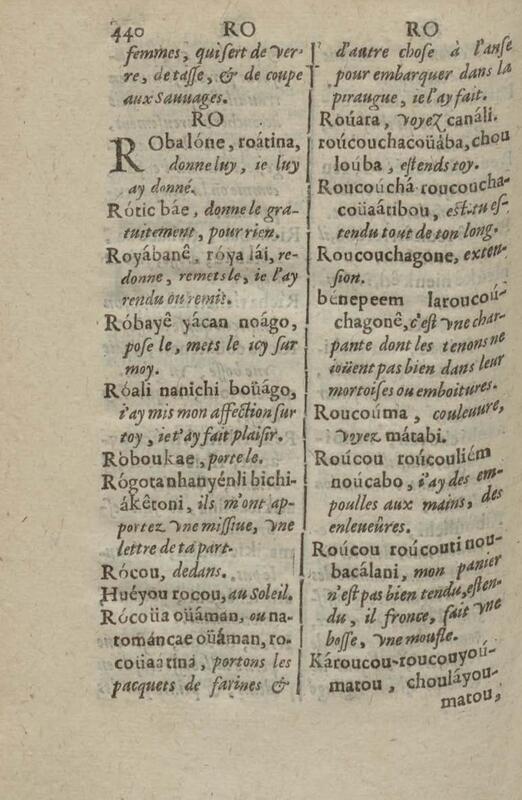 440 RO RO
femmes, qui sert de ver-
re, de tasse, & de coupe
aux Sauuages.
RO
RObalóne, roátina,
donne luy, ie luy
ay donné.
Rótic báe, donne le gra-
tuitement, pour rien.
Royábanê, róya lái, re-
donne, remets le, ie l'ay
rendu ou remis.
Róbayê yácan noágo,
pose le, mets le icy sur
moy.
Róali nanichi boüágo,
i'ay mis mon affection sur
toy, ie t'ay fait plaisir.
Roboukae, porte le.
Rógotanhanyénli bichi-
ákêtoni, ils m'ont ap-
portez vne missiue, vne
lettre de ta part.
Rócou, dedans.
Huéyou rocou, au Soleil.
Rócoüa oüáman, ou na-
tománcae oüáman, ro-
coüaatina, portons les
pacquets de farines &
d'autre chose à l'anse
pour embarquer dans la
piraugue, ie l'ay fait.
Roúara, voyez canáli.
roúcouchacoüába, chou
loúba, estends toy.
Roucoúchá roucoucha-
coüaátibou, est-tu es-
tendu tout de ton long.
Roucouchagone, exten-
sion.
bénepeem laroucoú-
chagonê, c'est vne char-
pante dont les tenons ne
ioüent pas bien dans leur
mortoises ou emboitures.
Roucoúma, couleuure,
voyez mátabi.
Roúcou roúcouliém
noúcabo, i'ay des em-
poulles aux mains, des
enleueûres.
Roúcou roúcouti nou-
bacálani, mon panier
n'est pas bien tendu, esten-
du, il fronce, fait vne
bosse, vne moufle.
Károucou-roucouyoú-
matou, chouláyou-
matou,